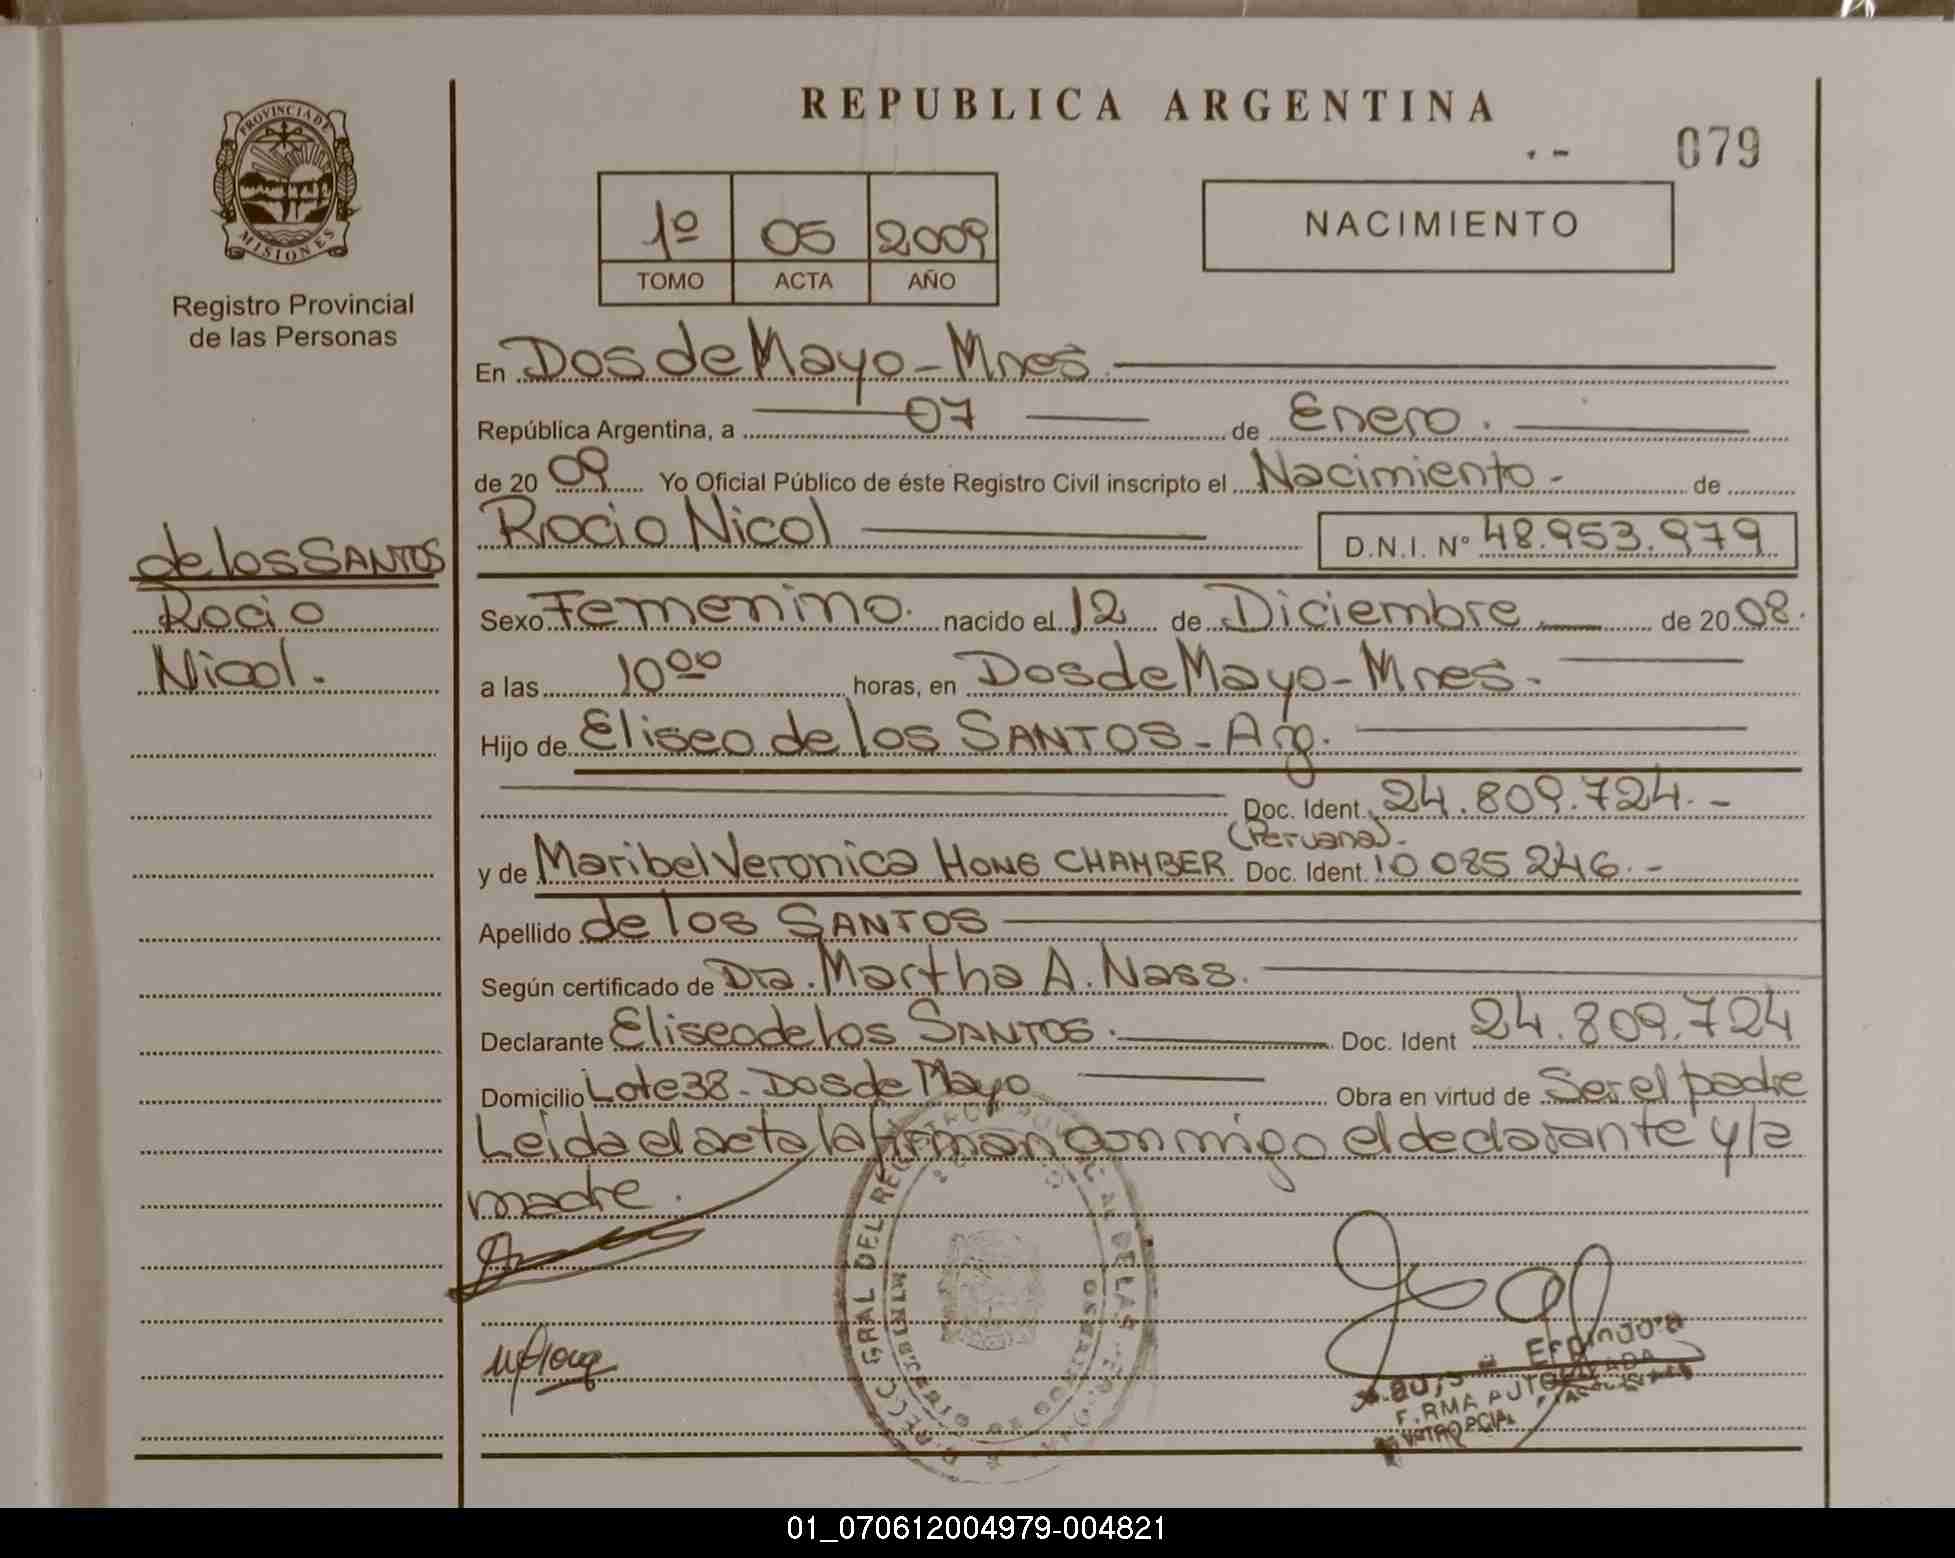 REPUBLICA ARGENTINA
079
PROVINCIA DE
MISIONES
Registro Provincial
de las Personas
1º 05 2009
TOMO ACTA AÑO
NACIMIENTO
En Dos de Mayo - Mnes.
República Argentina, a 07 de Enero.
de 20 09 Yo Oficial Público de éste Registro Civil inscripto el Nacimiento - de
Rocio Nicol D.N.I. Nº 48.953.979
de los SANTOS
Rocio
Nicol.
Sexo Femenino. nacido el 12 de Diciembre de 20 08.
a las 10 00 horas, en Dos de Mayo - Mnes. -
Hijo de Eliseo de los SANTOS - Arg.
Doc. Ident. 24.809.724. -
(Peruana). -
y de Maribel Veronica HONG CHAMBER Doc. Ident. 10 085 246. -
Apellido de los SANTOS
Según certificado de Dra. Martha A. Nass.
Declarante Eliseo de los SANTOS. Doc. Ident 24.809.724
Domicilio Lote 38 - Dos de Mayo Obra en virtud de Ser el padre
Leida el acta la firman conmigo el declarante y la
madre.
GRAL DEL
DE LAS
FIRMA AUTORIZADA
01_070612004979-004821